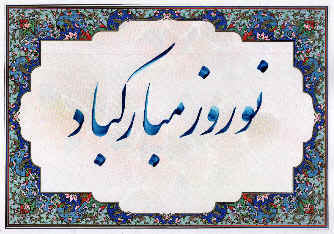 نوروز مبارکباد